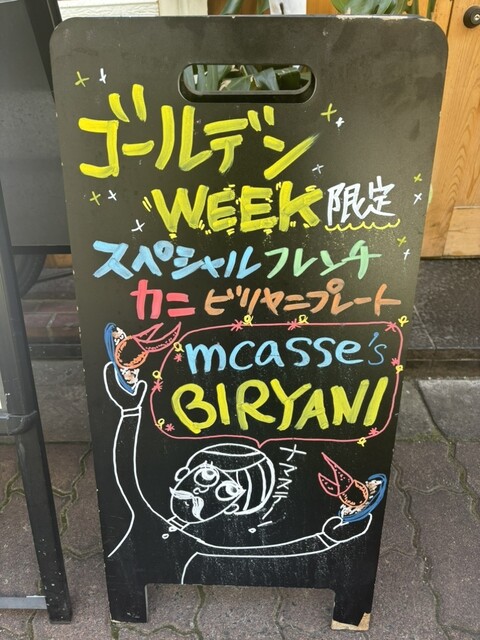 ゴールデン
WEEK限定
スペシャルフレンチ
カニ ビリヤニプレート
mcasse's
BIRYANI